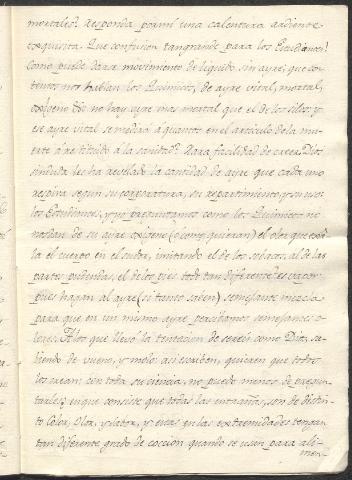 mortales? Responda por mi una calentura ardiente
exquisita. Que confusion tan grande para los Estudiantes!
Como puede darse movimiento de liquido, sin ayre; que con
tentos nos hablan los Quimicos, de ayre vital, mortal,
oxigeno &c no hay ayre mas mortal que el de los silos: y
ese ayre vital se medirá a quantos en el articulo de la mu-
erte á restituido á la sanidad? Rara facilidad de creer; Dios
sin duda les ha revelado la cantidad de ayre que cada uno
respira segun su corporatura, su repartimiento y su uso:
los Estudiantes, y no preguntamos como los Quimicos no
notan de su ayre oxigeno (ó como quieran) el olor que exa
la el cuerpo en el sudor, imitando el de los sobacos, al de las
partes pudendas, el de los pies todo tan diferente? es vapor
pues hagan al ayre (si tanto saben) semejante mezcla
para que en un mismo ayre percibamos semejantes o-
lores. A los que llevó la tentacion de serán como Dios, sa-
biendo de bueno, y malo: asi escriben, quieren que todos
los crean: den toda su ciencia, no puedo menos de pregun-
tarles en que consiste que todas las entrañas, son de distin-
to Color, Olor, y sabor, y estas en las extremidades tengan
tan diferente grado de coccion quando se usen para ali-
men-